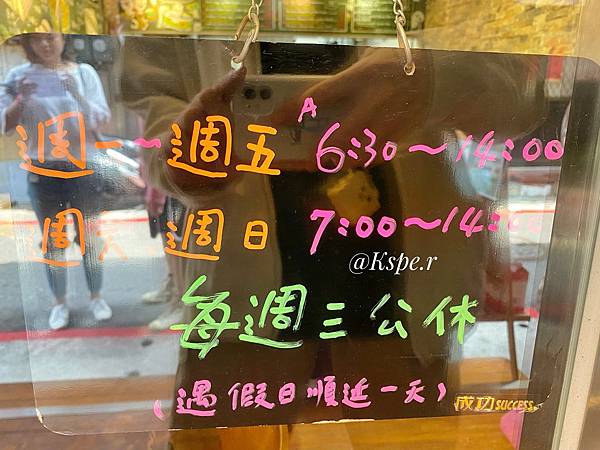 週一~週五 AM 6:30~14:00
週六 週日 7:00~14:00
@Kspe.r
每週三公休
(遇假日順延一天)
成功 SUCCESS